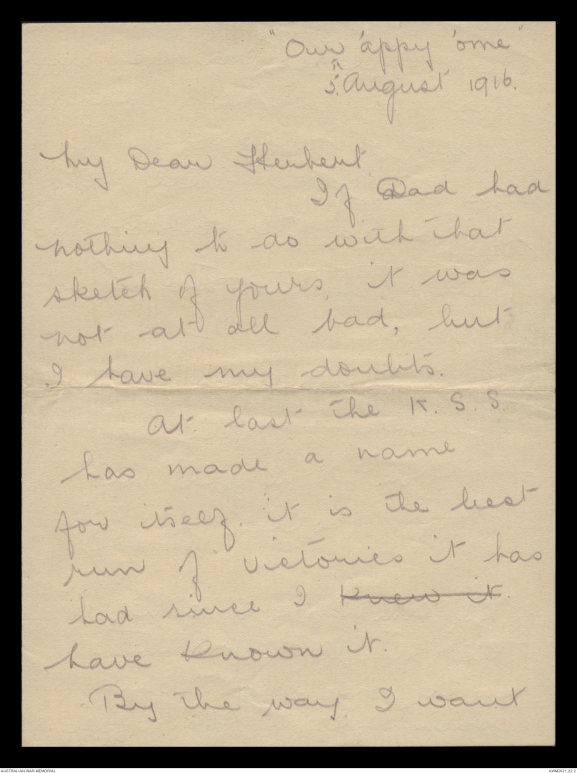 "Our 'appy 'ome"
5th August 1916.
My Dear Herbert
If Dad had
nothing to do with that
sketch of yours, it was
not at all bad, but
I have my doubts.
At last the K. S. S.
has made a name
for itself. it is the best
run of victories it has
had since I knew it.
have known it.
By the way I want
AUSTRALIAN WAR MEMORIAL